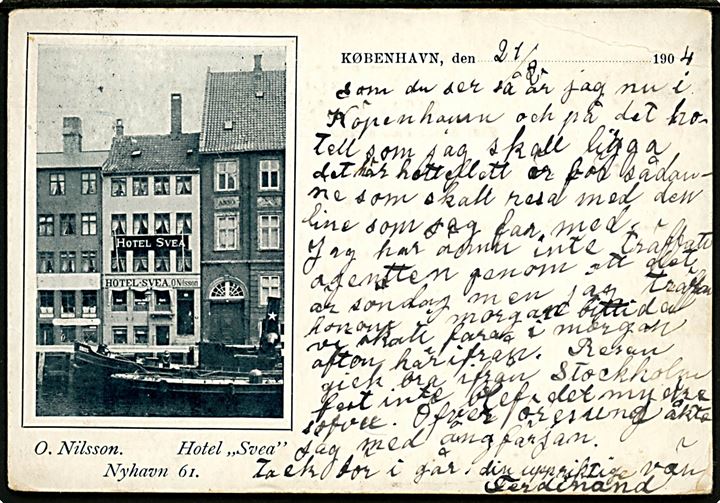 KØBENHAVN, den 21/8 1904
som du ser så är jag nu i
Köpenhavn och på det ho-
tell som jag skall ligga
det är hottellett är för sådan-
ne som skall resa med den
line som jag far med.
Jag har ännu inte träffatt
agentten genom att det
är söndag men jag träffar
honom i morgon bittida
vi skall fara i morgon
afton härifrån. Resan
gick bra ifrån Stockholm
fast inte blef det mycke
sofvu. Öfver öresung åkte
jag med ångfärjan.
Tack för i går din uppriktige vän
Ferdinand
HOTEL SVEA
HOTEL-SVEA. O. Nilsson
O. Nilsson. Hotel „Svea"
Nyhavn 61.